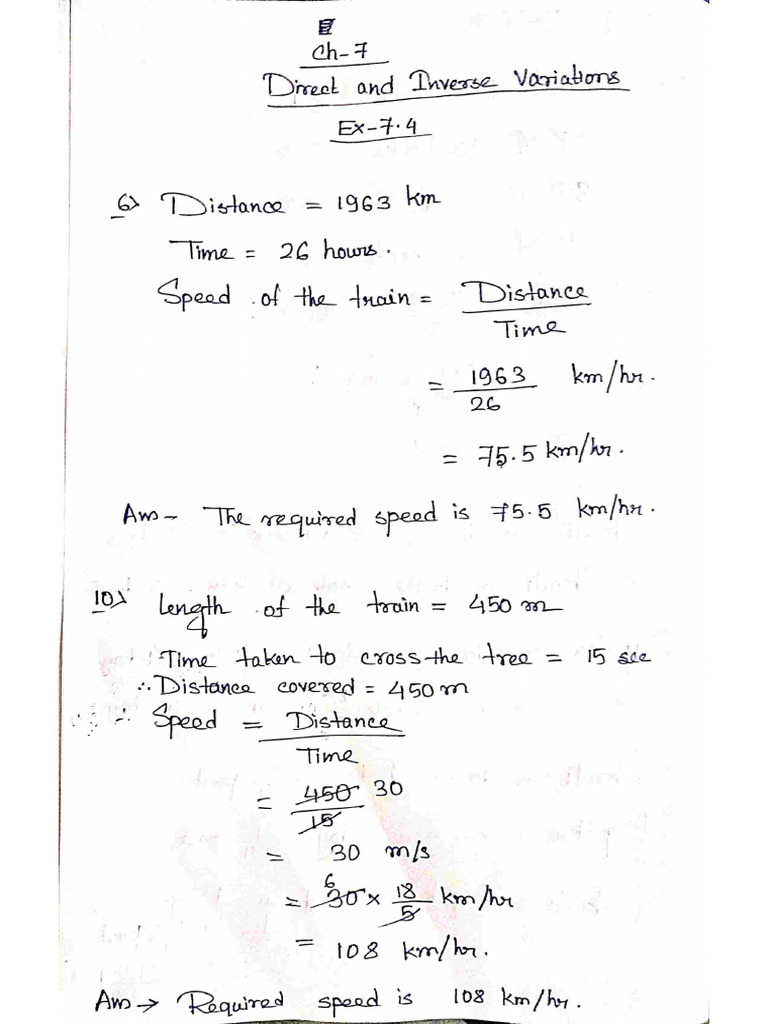 Ch-7
Direct and Inverse Variations
Ex-7.4
6) Distance = 1963 km
Time = 26 hours.
Speed of the train = Distance
Time
= 1963 km/hr.
26
= 75.5 km/hr.
Ans - The required speed is 75.5 km/hr.
10) Length of the train = 450 m
Time taken to cross the tree = 15 sec
∴ Distance covered = 450 m
∴ Speed = Distance
Time
= 450 30
15
= 30 m/s
6
= 30 × 18 km/hr
5
= 108 km/hr.
Ans → Required speed is 108 km/hr.